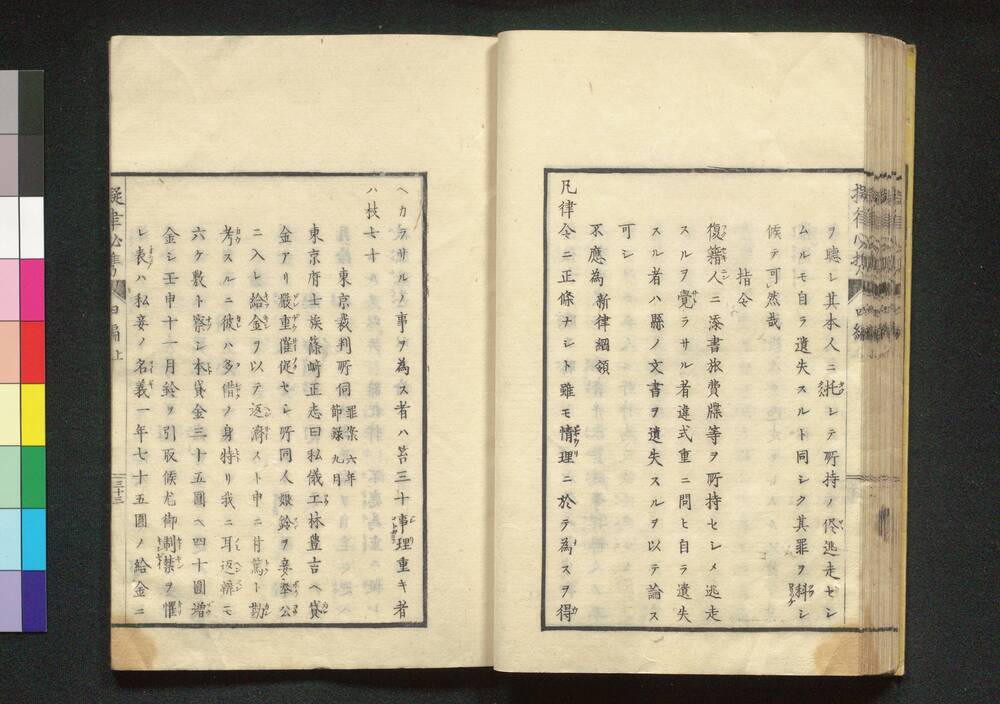 ヲ聴シ其本人ニ托シテ所持ノ侭逃走セシ
ムルモ自ラ遺失スルト同シク其罪ヲ科シ
候テ可然哉
指令
復籍人ニ添書旅費牒等ヲ所持セシメ逃走
スルヲ覚ラサル者違式重ニ問ヒ自ラ遺失
スル者ハ縣ノ文書ヲ遺失スルヲ以テ論ス
可シ
不應為新律綱領
凡律令ニ正條ナシト雖モ情理ニ於テ為スヲ得
ヘカラサルノ事ヲ為ス者ハ笞三十事理重キ者
ハ杖七十
東京裁判所伺 罪案節録 六年九月
東京府士族篠崎正志曰私儀工林豊吉ヘ貸
金アリ嚴重催促セシ所同人娘鈴ヲ妾奉公
ニ入レ給金ヲ以テ返濟スト申ニ付篤ト勘
考スルニ彼ハ多借ノ身特リ我ニ耳返濟モ
六ケ敷ト察シ本貸金三十五圓ヘ四十圓増
金シ壬申十一月鈴ヲ引取候尤御制禁ヲ懼
レ表ハ私妾ノ名義一年七十五圓ノ給金ニ
擬律必携 四編上
三十三